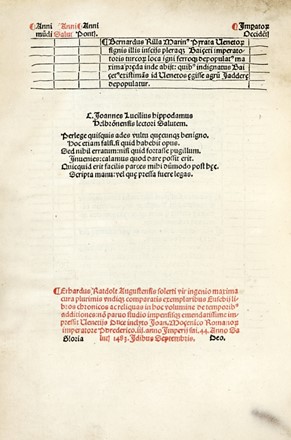 Anni Anni Anni Imperatoꝝ
mūdi Salut. Pontj. Occidēt
Bernardus Rilla Marinꝰ Pyrata Uenetoꝝ
signis illis infestis peteras Baiseri imperato
toris turcoꝝ loca igni ferroqꝫ depopulatꝰ ma
xima pręda inde abijt: quibꝰ indignatus Bai
ęgisse agrū Jadderę
depopulatur.
L. Joannes Lucilius hippodamus
lectori Salutem.
Perlege quisquis ades vultu quęcunqꝫ benigno.
Uoce etiam falsa. si quid habebis opus.
Sed nihil erratum: nisi quid fortasse pugillum.
Inuenies: calamus quod dare possit erit.
Quicquid erit facilis parces mihi dūmodo post hęc.
Scripta manu: vel quę pressa fuere legas.
Erhardus Ratdolt Augustensis solerti vir ingenio maxima
cura plurimis vndiqꝫ comparatis exemplaribus Eusebij li
bros chronicos ac reliquas in hoc volumine de temporibꝰ
additiones: nō paruo studio impensisqꝫ emendatissime im
pressit Uenetijs Duce inclyto Joan. Mocenico Romanoꝝ
imperatore Phrederico.iij. anno Imperij sui.44. Anno Sa
Gloria lutꝭ 1483. Idibus Septembris. Deo.